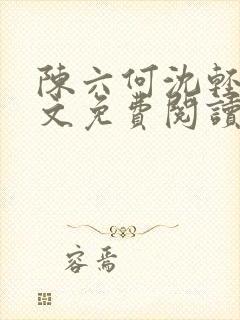 陳六何沈輕
文免費閱讀
容焉